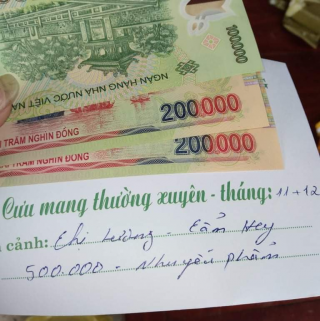 100000
NGÂN HÀNG NHÀ NƯỚC VIỆT NA
200000
TRĂM NGHÌN ĐỒNG
200000
TRĂM NGHÌN ĐỒNG
Cưu mang thường xuyên - tháng: 11 + 12
cảnh: Chị Lương - Cẩm Hey
500.000 - Nhuyễn phẩm